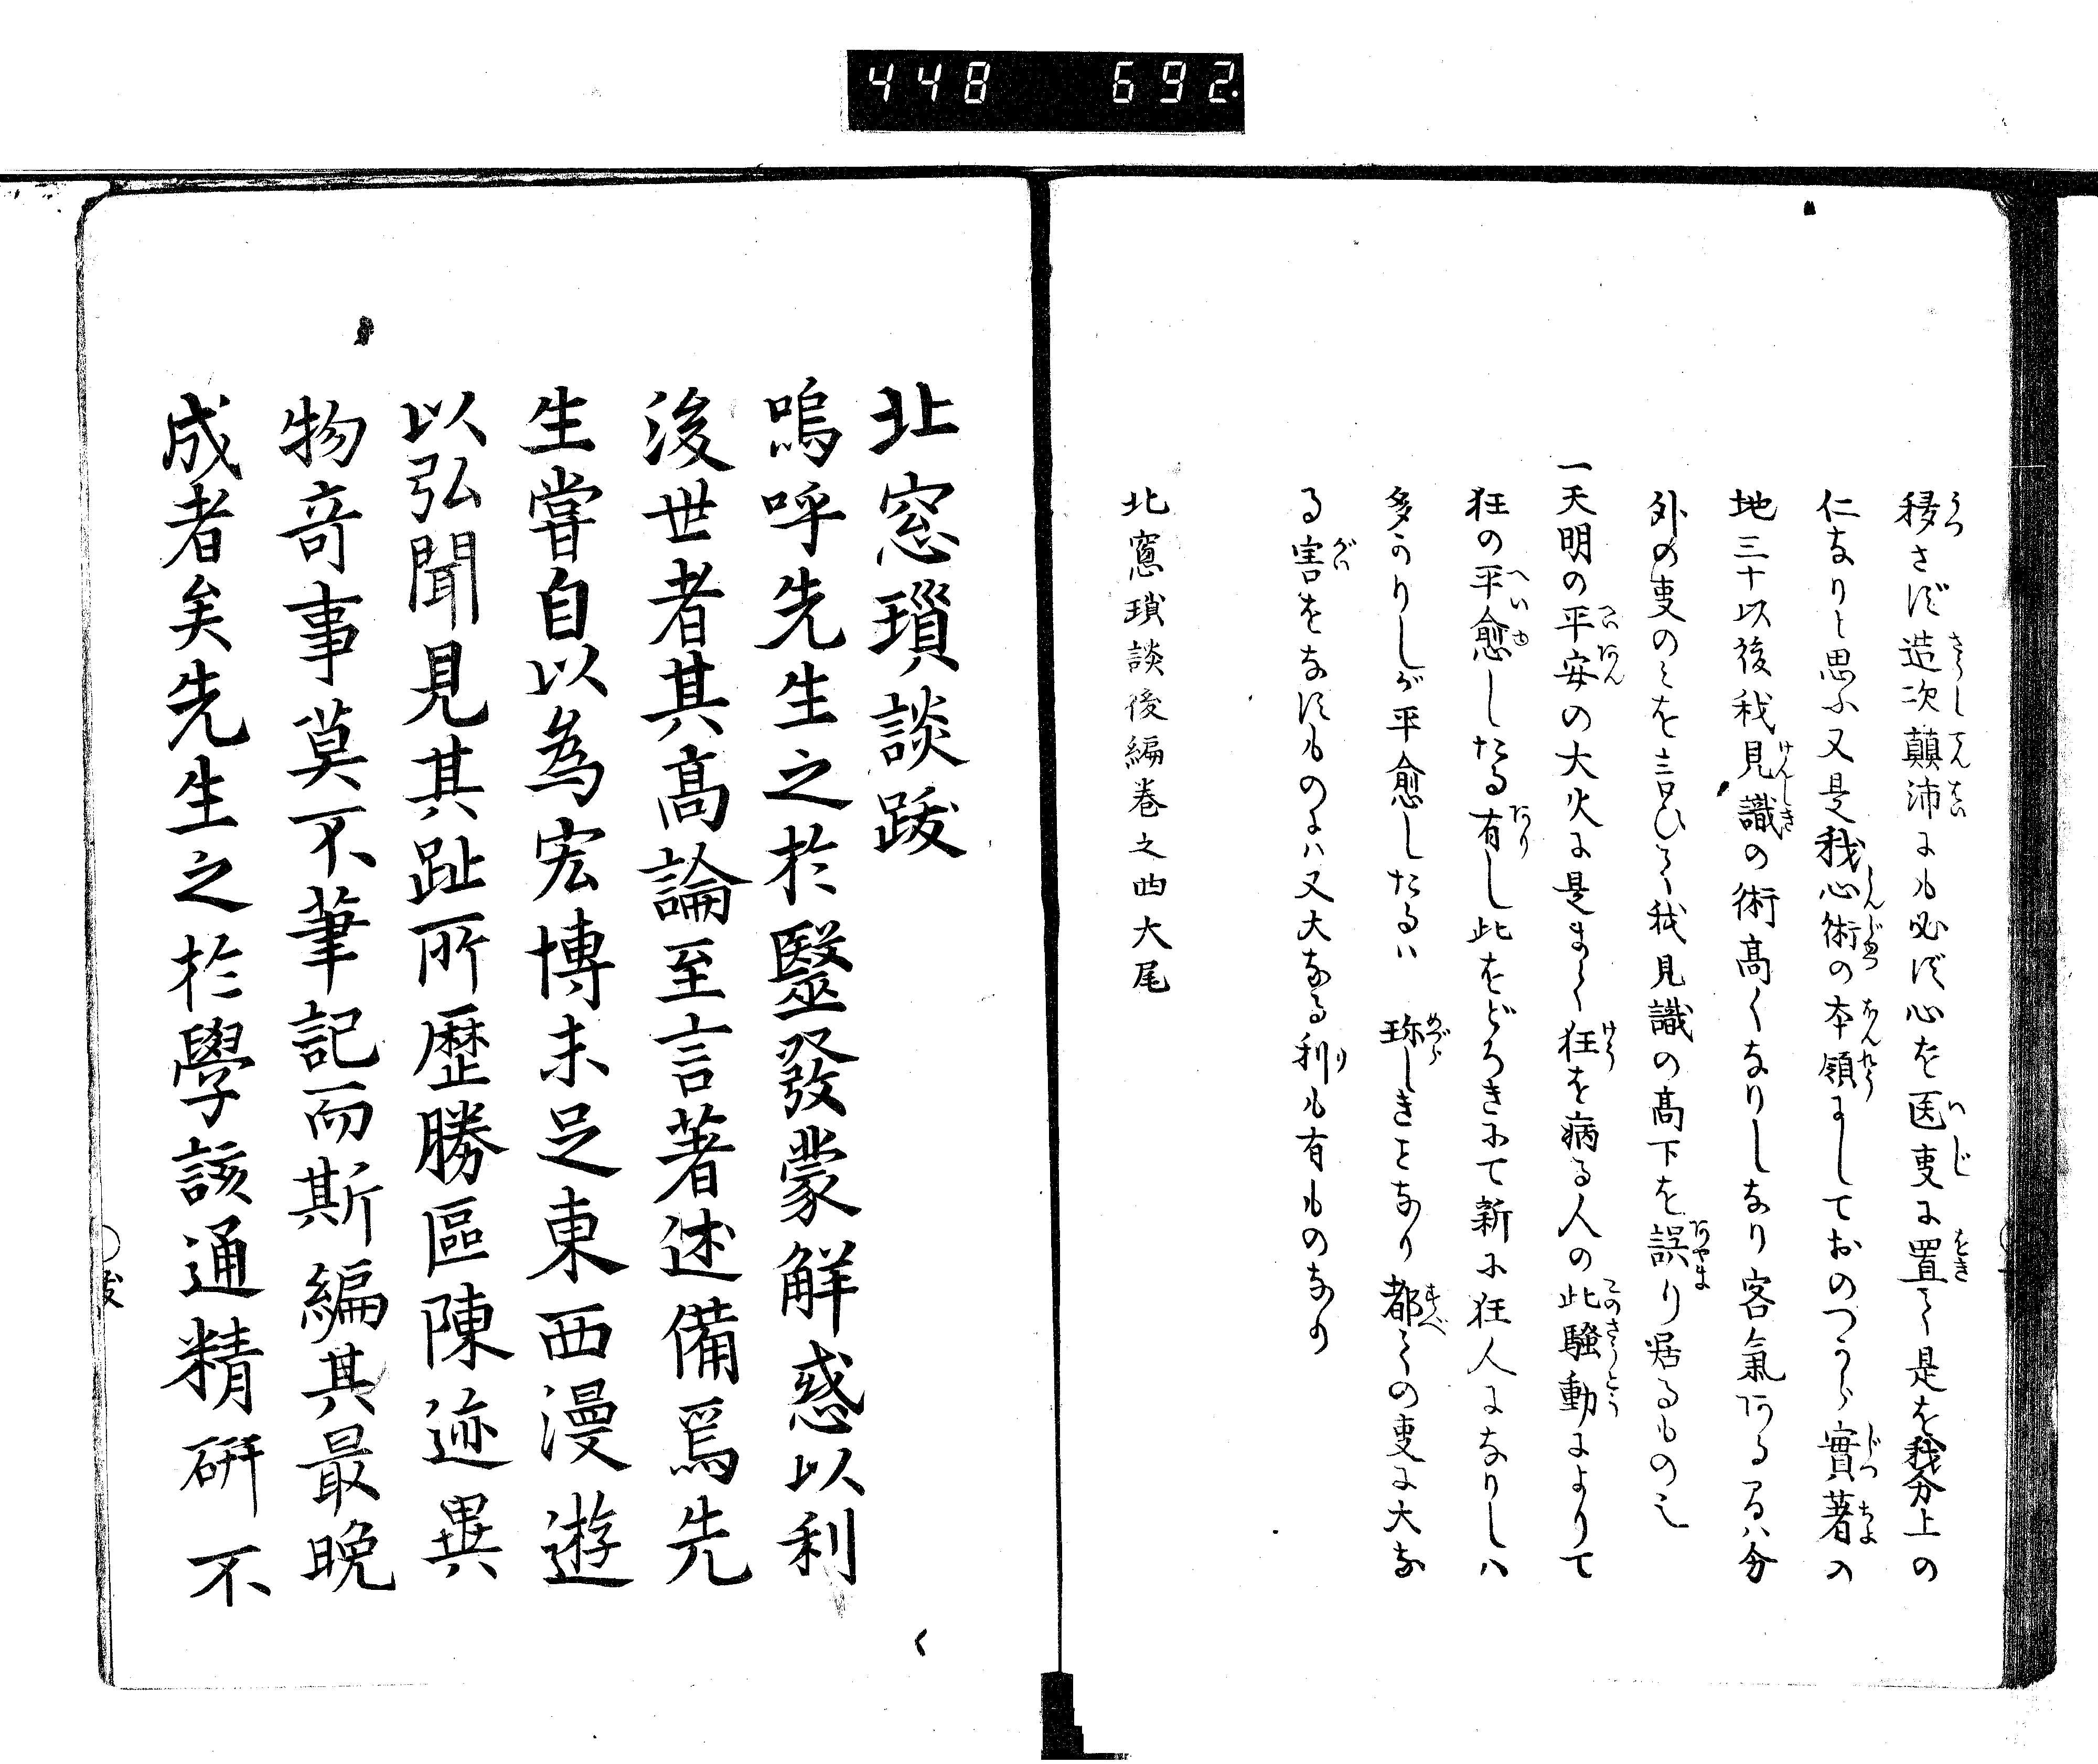 448 692
移さず造次顛沛にも必ず心を医事に置て是を我分上の
仁なりと思ふ又是我心術の本領にしておのづから實著の
地三十以後我見識の術高くなりしなり客氣ある間は分
外の事のみを言ひて我見識の高下を誤り居るもの也
一天明の平安の大火に是まで狂を病る人の此騒動によりて
狂の平愈したる有し此をどろきにて新に狂人になりしハ
多かりしが平愈したるハ 珎しきことなり都ての事に大な
る害をなすものにハ又大なる利も有ものなり
北窻瑣談後編巻之四大尾
北窓瑣談跋
嗚呼先生之於醫發蒙解惑以利
後世者其高論至言著述備焉先
生嘗自以為宏博未足東西漫遊
以弘聞見其趾所歴勝區陳迹異
物竒事莫不筆記而斯編其最晩
成者矣先生之於學該通精研不